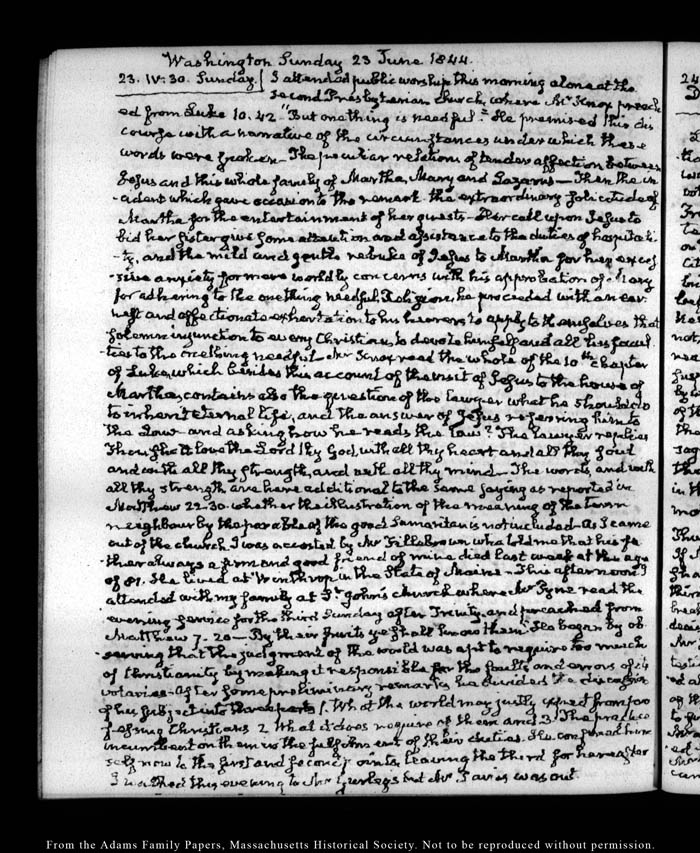 Washington Sunday 23 June 1844.
23. IV:30. Sunday. I attended public worship this morning alone at the
second Presbyterian Church, where Mr Knox preach
ed from Luke 10. 42 "But one thing is needful." He premised this dis
course with a narrative of the circumstances under which these
words were spoken— The peculiar relations of tender affection between
Jesus and this whole family of Martha, Mary and Lazarus— Then the in
-cident which gave occasion to the remark. the extraordinary solicitude of
Martha for the entertainment of her guests— Her call upon Jesus to
bid her sister give some attention and assistance to the duties of hospitali
-ty, and the mild and gentle rebuke of Jesus to Martha for her exces
-sive anxiety for mere worldly concerns with his approbation of Mary
for adhering to the one thing needful, Religion, he proceeded with an ear
nest and affectionate exhortation to his hearers to apply to themselves that
solemn injunction to every Christian, to devote himself and all his facul
-ties to the one thing needful— Mr Knox read the whole of the 10th chapter
of Luke, which besides this account of the visit of Jesus to the house of
Martha, contains also the question of the lawyer what he should do
to inherit eternal life, and the answer of Jesus referring him to
the Law and asking how he reads the Law? The lawyer replies
Thou shalt love the Lord thy God, with all thy heart and all thy soul
and with all thy strength, and with all thy mind— The words, and with
all thy strength are here additional to the same saying as reported in
Matthew 22. whether the illustration of the meaning of the term
neighbour by the parable of the good Samaritan is not included— As I came
out of the church I was accosted by Mr Fillebrown who told me that his fa
ther always a firm and good friend of mine died last week at the age
of 81. He lived at Winthrop in the State of Maine— This afternoon I
attended with my family at St John's church where Mr Pyne read the
evening service for the third Sunday after Trinity, and preached from
Matthew 7. 20— By their fruits ye shall know them." He began by ob
-serving that the judgment of the world was apt to require too much
of Christianity by making it responsible for the faults and errors of its
votaries. After some preliminary remarks he divided the discussion
of his subject into three parts 1. What the world may justly expect from pro
fessing Christians 2 What it does require of them and 3. The practice
incumbent on them in the fulfilment of their duties. He confined him
self now to the first and second points, leaving the third for hereafter
I walked this evening to Mr but Mr was out.
From the Adams Family Papers, Massachusetts Historical Society. Not to be reproduced without permission.